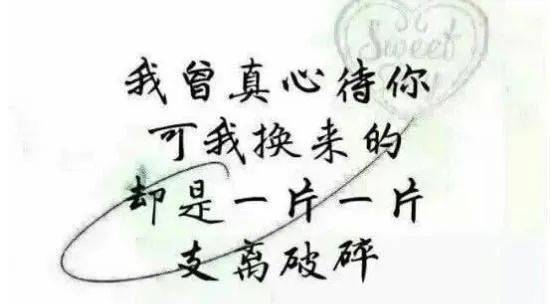 Sweet
我曾真心待你
可我换来的
却是一片一片
支离破碎